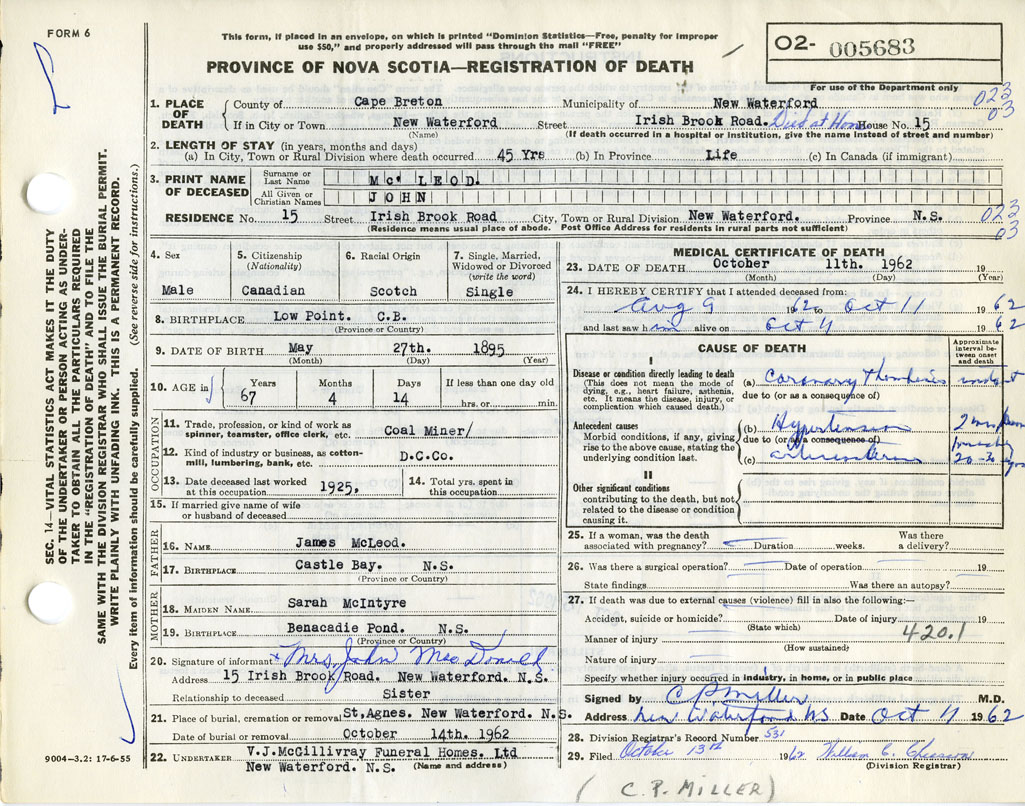 FORM 6
This form, if placed in an envelope, on which is printed "Dominion Statistics—Free, penalty for improper
use $50," and properly addressed will pass through the mail "FREE"
PROVINCE OF NOVA SCOTIA—REGISTRATION OF DEATH
O2- 005683
For use of the Department only
023
03
1. PLACE OF DEATH
County of Cape Breton Municipality of New Waterford
If in City or Town New Waterford Street Irish Brook Road. Died at Home House No. 15
(Name) (If death occurred in a hospital or institution, give the name instead of street and number)
2. LENGTH OF STAY (in years, months and days)
(a) In City, Town or Rural Division where death occurred 45 Yrs (b) In Province Life (c) In Canada (if immigrant)
3. PRINT NAME OF DECEASED
Surname or Last Name Mc' LEOD.
All Given or Christian Names JOHN
RESIDENCE No. 15 Street Irish Brook Road City, Town or Rural Division New Waterford. Province N.S.
(Residence means usual place of abode. Post Office Address for residents in rural parts not sufficient)
023
03
4. Sex
Male
5. Citizenship
(Nationality)
Canadian
6. Racial Origin
Scotch
7. Single, Married,
Widowed or Divorced
(write the word)
Single
8. BIRTHPLACE Low Point. C.B.
(Province or Country)
9. DATE OF BIRTH May 27th. 1895
(Month) (Day) (Year)
10. AGE in
Years Months Days If less than one day old
67 4 14 hrs. or min.
OCCUPATION
11. Trade, profession, or kind of work as
spinner, teamster, office clerk, etc. Coal Miner/
12. Kind of industry or business, as cotton-
mill, lumbering, bank, etc. D.C.Co.
13. Date deceased last worked
at this occupation 1925.
14. Total yrs. spent in
this occupation
15. If married give name of wife
or husband of deceased
FATHER
16. NAME James McLeod.
17. BIRTHPLACE Castle Bay. N.S.
(Province or Country)
MOTHER
18. MAIDEN NAME Sarah McIntyre
19. BIRTHPLACE Benacadie Pond. N.S.
(Province or Country)
20. Signature of informant x Mrs John MacDonald
Address 15 Irish Brook Road. New Waterford. N.S.
Relationship to deceased Sister
21. Place of burial, cremation or removal St,Agnes. New Waterford. N.S.
Date of burial or removal October 14th. 1962
22. UNDERTAKER V.J.McGillivray Funeral Homes. Ltd
New Waterford. N.S. (Name and address)
MEDICAL CERTIFICATE OF DEATH
23. DATE OF DEATH October 11th. 1962 19
(Month) (Day) (Year)
24. I HEREBY CERTIFY that I attended deceased from:
Aug 9 1962 to Oct 11 1962
and last saw him alive on Oct 11 1962
CAUSE OF DEATH
Approximate
interval be-
tween onset
and death
I
Disease or condition directly leading to death
(This does not mean the mode of
dying, e.g., heart failure, asthenia,
etc. It means the disease, injury, or
complication which caused death.)
(a) Coronary Thrombosis
due to (or as a consequence of)
Antecedent causes
Morbid conditions, if any, giving
rise to the above cause, stating the
underlying condition last.
(b) Hypertension
due to (or as a consequence of)
(c) arteriosclerosis 20-30
II
Other significant conditions
contributing to the death, but not
related to the disease or condition
causing it.
25. If a woman, was the death
associated with pregnancy? Duration weeks.
Was there
a delivery?
26. Was there a surgical operation? Date of operation 19
State findings Was there an autopsy?
27. If death was due to external causes (violence) fill in also the following:—
Accident, suicide or homicide? Date of injury 19
(State which)
420.1
Manner of injury
(How sustained)
Nature of injury
Specify whether injury occurred in industry, in home, or in public place
Signed by C P Miller M.D.
Address New Waterford NS Date Oct 11 1962
28. Division Registrar's Record Number 531
29. Filed October 13th 1962 William C.
(Division Registrar)
(C. P. MILLER)
SEC. 14—VITAL STATISTICS ACT MAKES IT THE DUTY
OF THE UNDERTAKER OR PERSON ACTING AS UNDER-
TAKER TO OBTAIN ALL THE PARTICULARS REQUIRED
IN THE "REGISTRATION OF DEATH" AND TO FILE THE
SAME WITH THE DIVISION REGISTRAR WHO SHALL ISSUE THE BURIAL PERMIT.
WRITE PLAINLY WITH UNFADING INK. THIS IS A PERMANENT RECORD.
Every item of information should be carefully supplied. (See reverse side for instructions.)
9004—3.2: 17-6-55